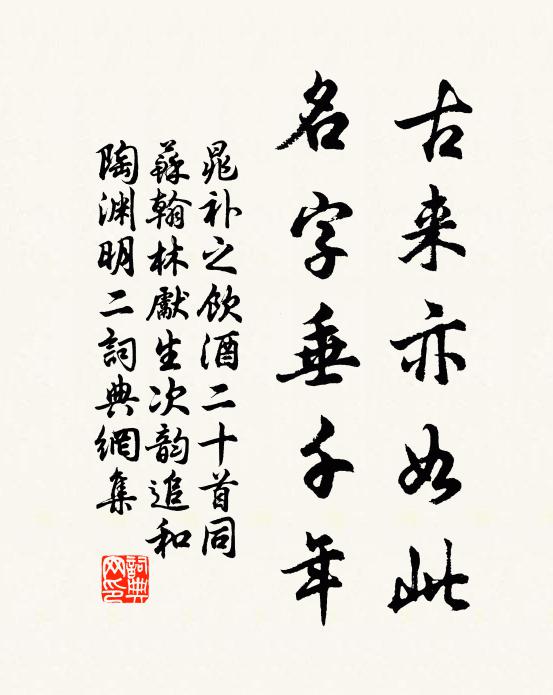 古来亦如此
名字垂千年
晁补之飲酒二十首同
蘇翰林獻生次韵追和
陶渊明二詞典網集
詞典网印